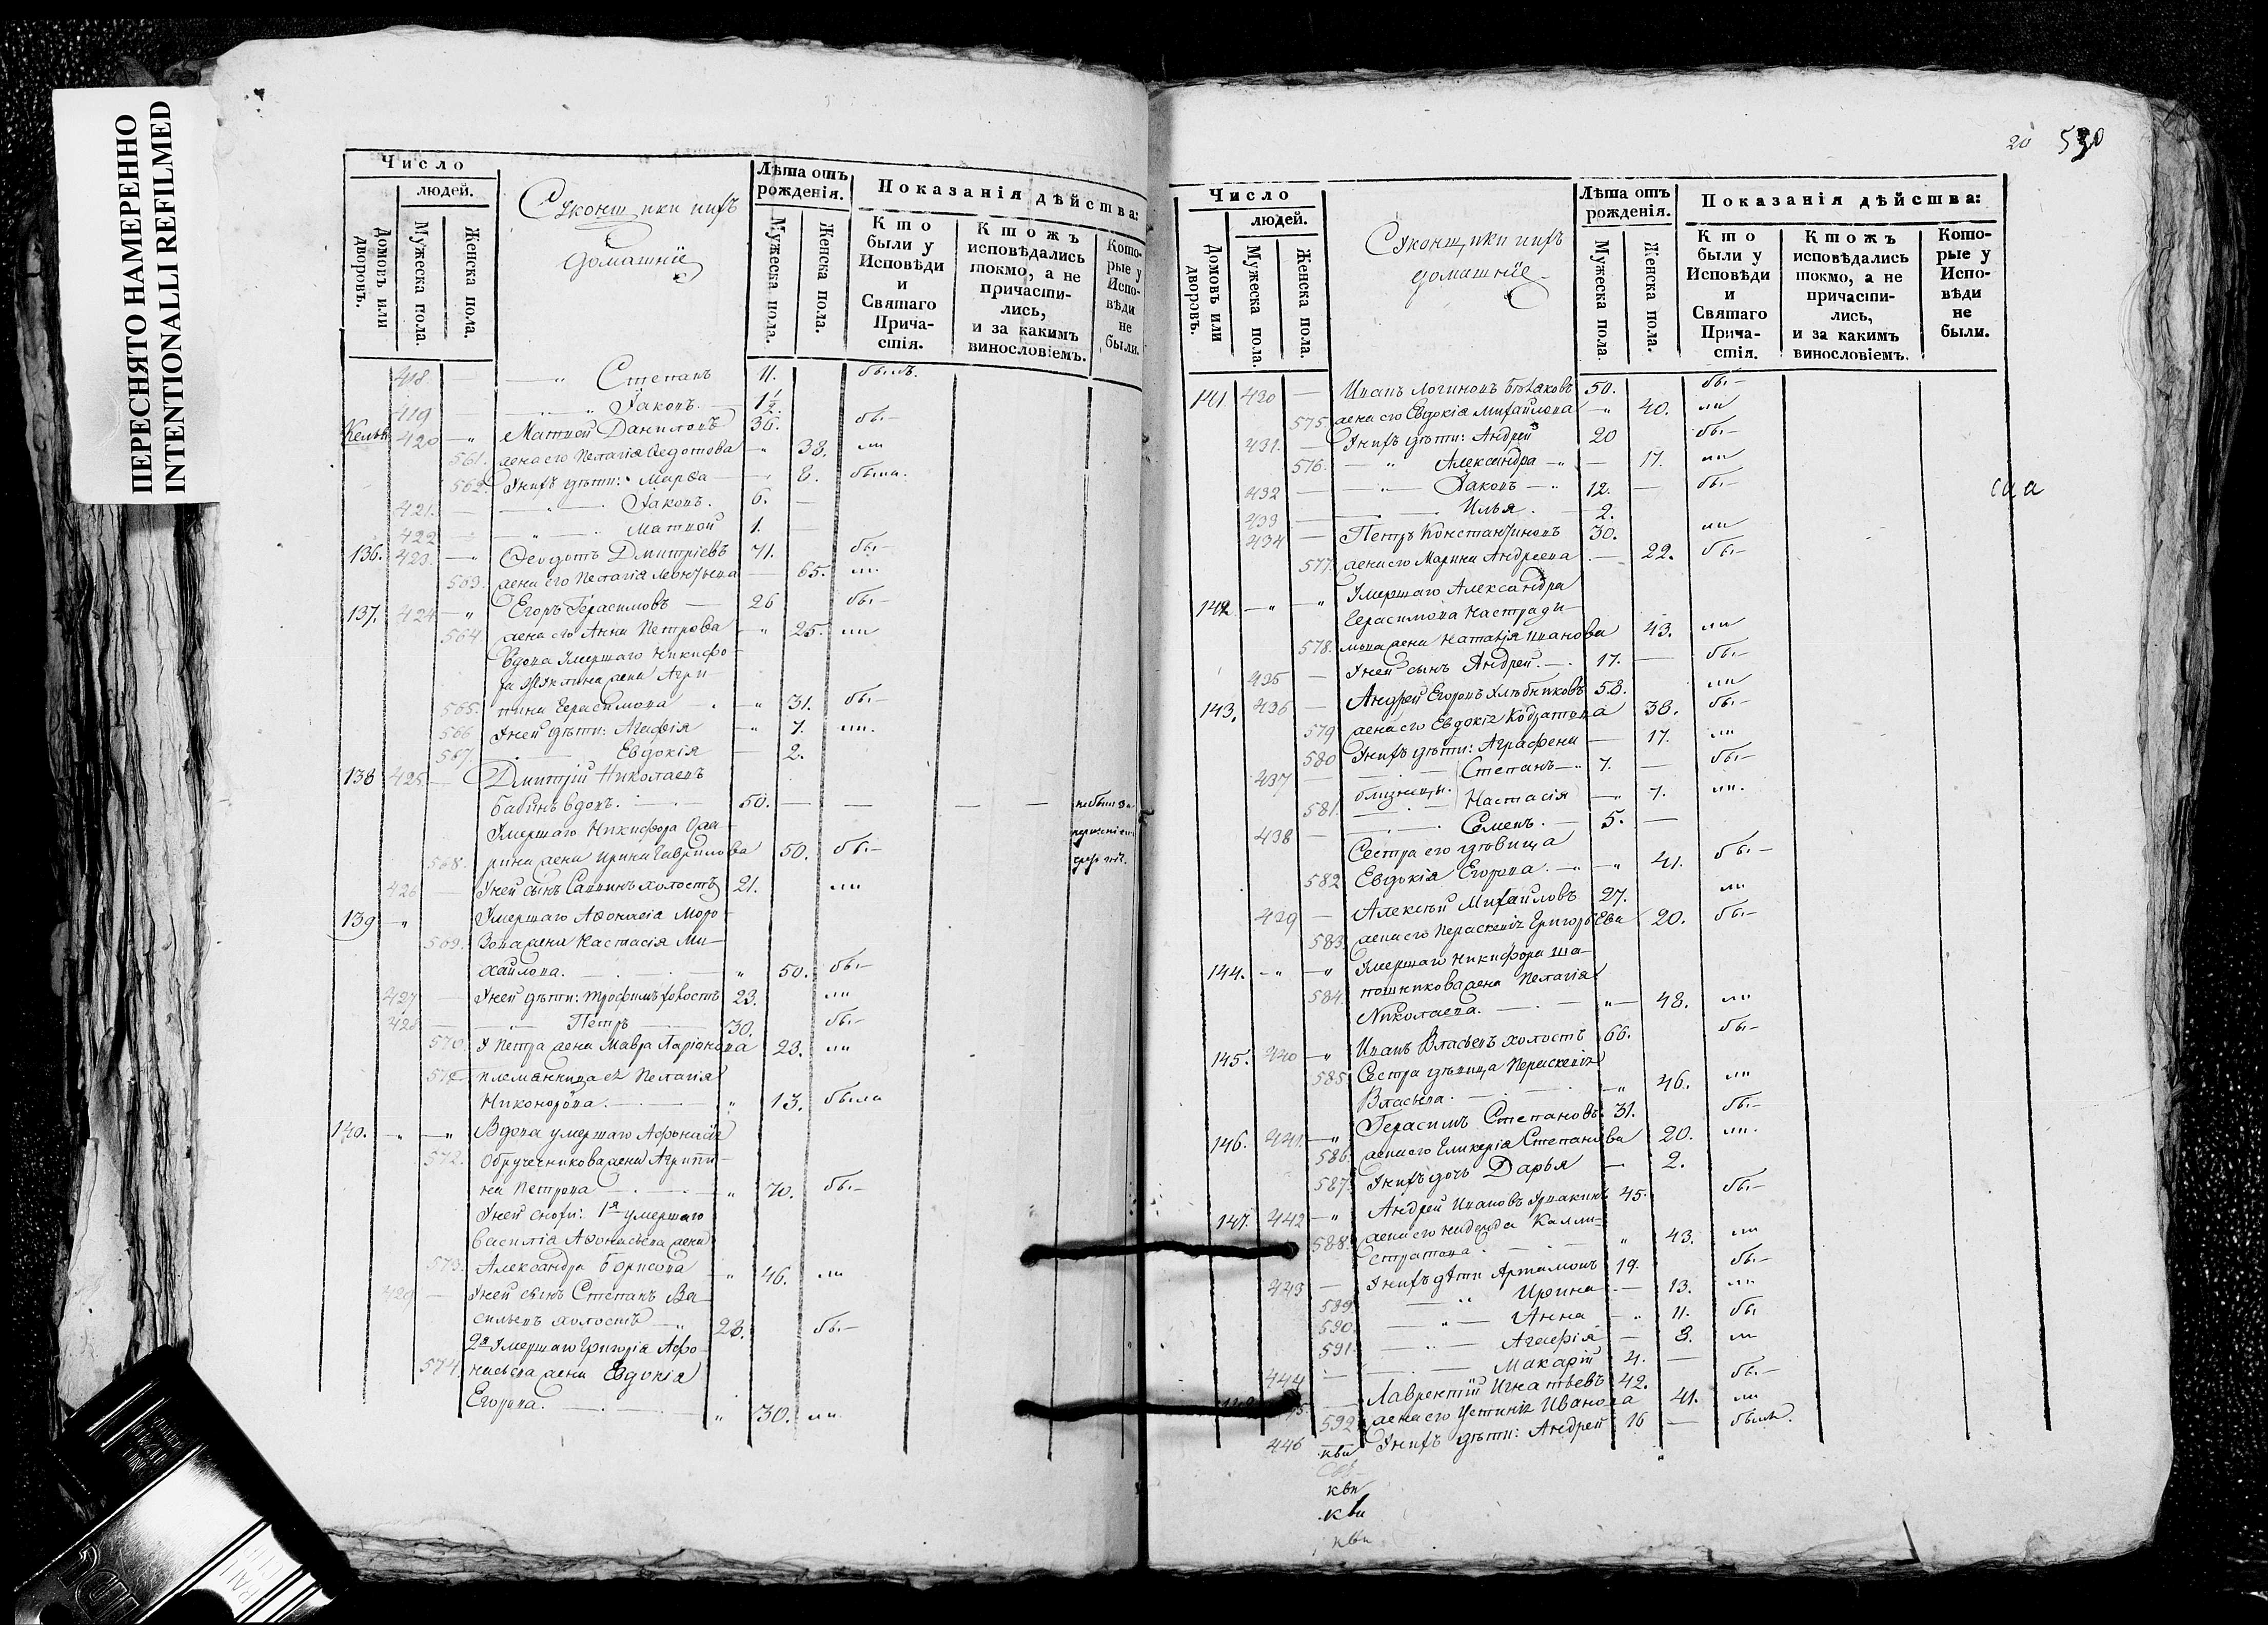 ПЕРЕСНЯТО НАМЕРЕННО
INTENTIONALLI REFILMED
Число
людей.
Домовъ или дворовъ.
Мужеска пола.
Женска пола.
Суконщики ихъ
домашніе
Лѣта отъ рожденія.
Мужеска пола.
Женска пола.
Показанія дѣйства:
Кто были у Исповѣди и Святаго Прича-стія.
Ктожъ исповѣдались токмо, а не причасти-лись, и за какимъ винословіемъ.
Кото-рые у Испо-вѣди не были.
418. Степанъ 11. былъ.
419 Іаковъ. 1½
420 Матвей Даниловъ 36. бы
561. жена его Пелагія Ѳедотова 38. ли
562. У нихъ дѣти: Марѳа 8. была.
421. Іаковъ. 6.
422 Матвей 1.
136. 423. Ѳеодотъ Дмитріевъ 71. бы
563. жена его Пелагія Леонтьева 65. ли
137. 424 Егоръ Герасимовъ 26 бы
564 жена его Анна Петрова 25. ли
Вдова умершаго Никифо-
ра жена Агри-
565. пина Герасимова 31. бы
566 У ней дѣти: Агафія 7. ли.
567. Евдокія 2.
138 425. Дмитрій Николаевъ
Бабинъ вдовъ. 50.
Умершаго Никифора
568. жена Ирина Гаврилова 50. бы
426 У ней сынъ Саввинъ холостъ 21. ли
139 Умершаго Аѳонасія Моро-
569. зова жена Настасія Ми-
хайлова. 50. бы
427 У ней дѣти: Трофимъ холостъ 23. ли
428 Петръ 30. бы
570. У Петра жена Мавра Ларіонова 23. ли
571 племянница ея Пелагія
Никонорова. 13. была
140. Вдова умершаго Афонасія
572. Обручникова жена Агрипи-
на Петрова 70. бы
У ней снохи: 1я умершаго
Василія Аѳонасьева жена
573. Александра Борисова 46. ли
429 У ней сынъ Степанъ Ва-
сильевъ холостъ 23. бы
2я Умершаго Григорія Афо-
574. насьева жена Евдокія
Егорова. 30. ли.
20 530
Число
людей.
Домовъ или дворовъ.
Мужеска пола.
Женска пола.
Суконщики ихъ
домашніе
Лѣта отъ рожденія.
Мужеска пола.
Женска пола.
Показанія дѣйства:
Кто были у Исповѣди и Святаго Прича-стія.
Ктожъ исповѣдались токмо, а не причасти-лись, и за какимъ винословіемъ.
Кото-рые у Испо-вѣди не были.
141 430 Иванъ Логиновъ 50. бы
575. жена его Евдокія Михайлова 40. ли
431. У нихъ дѣти: Андрей 20 бы
576. Александра 17. ли
432 Іаковъ 12. бы
433 Илья. 2.
434 Петръ Константиновъ 30. ли
577. жена его Марина Андреева 22. бы
142 Умершаго Александра
Герасимова
578. жена Наталія Иванова 43. ли
435 У ней сынъ Андрей. 17. бы
143. 436 Андрей Егоровъ Хлѣбниковъ 58. ли
579 жена его Евдокія 38. бы
580 У нихъ дѣти: Аграфена 17. ли
437 близнецы. Степанъ 7. бы
581. Настасія 7. ли.
438 Семенъ. 5.
Сестра его дѣвица
582 Евдокія Егорова. 41. бы
439 Алексѣй Михайловъ 27. ли
583. жена его Параскевія Григорьева 20. бы
144. Умершаго Никифора Ша-
584. пошникова жена Пелагія
Николаева. 48. ли
145. 440 Иванъ Власьевъ холостъ 66. бы
585 Сестра дѣвица Параскевія
Власьева. 46. ли
146. 441. Герасимъ Степановъ. 31. бы
586. жена его Гликерія Степанова 20. ли.
587. У нихъ дочь Дарья 2.
147. 442 Андрей Ивановъ 45. бы
588. жена его Надежда Калли-
стратова. 43. ли
443 У нихъ дѣти Артамонъ 19. бы
589 Ирина 13. ли
590. Анна 11. бы
591. Агафія 3. ли
444 Макарій 4.
Лаврентій Игнатьевъ 42. бы
592 жена его Устинія Иванова 41. ли
446 У нихъ дѣти: Андрей 16 былъ.